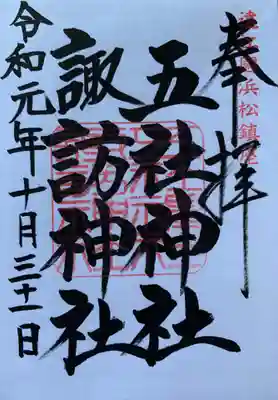 浜松鎮座
奉拝
五社神社
諏訪神社
令和元年十月三十一日